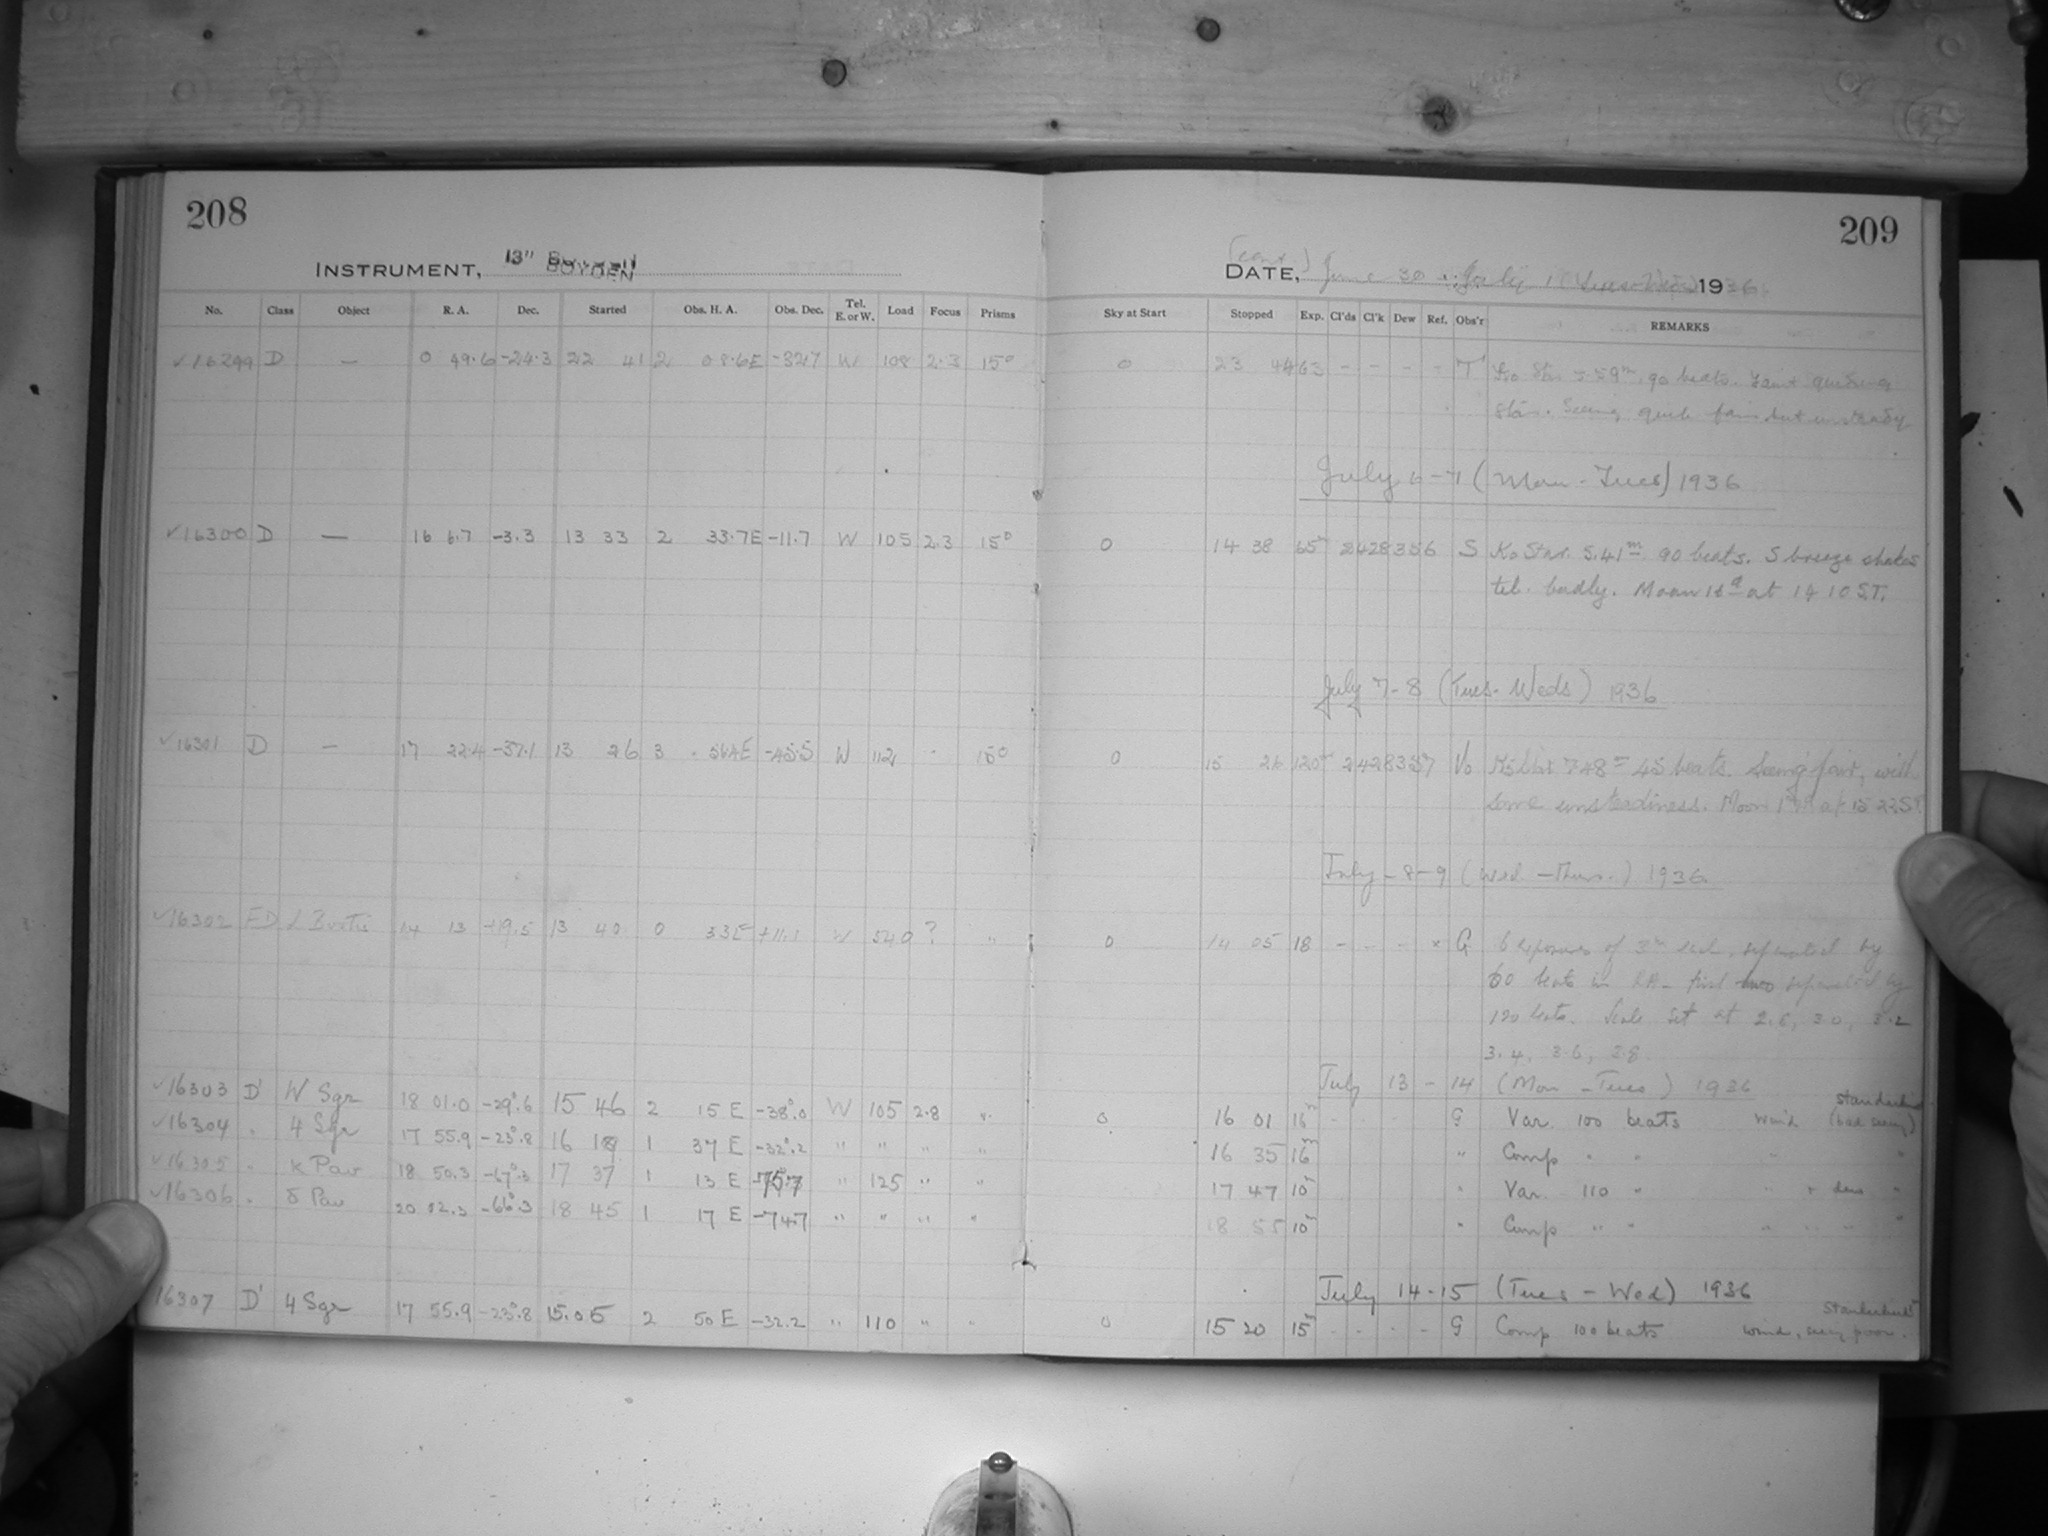 208
209
INSTRUMENT, 13" BOYDEN
(cont) DATE, June 30 - July 1 (Tues-Weds) 1936
No. Class Object R. A. Dec. Started Obs. H. A. Obs. Dec. Tel. E. or W. Load Focus Prisms Sky at Start Stopped Exp. Cl'ds Cl'k Dew Ref. Obs'r REMARKS
✓16299 D — 0 49.6 -24.3 22 41 2 08.6E -32.7 W 108 2.3 15° 0 23 44 63 - - - - T Ko Star 5.59m. 90 beats. Faint guiding
star. Seeing quite fair but unsteady
July 6-7 (Mon - Tues) 1936
✓16300 D — 16 6.7 -3.3 13 33 2 33.7E -11.7 W 105 2.3 15° 0 14 38 65m 2428356 S Ko Star. 5.41m 90 beats. S breeze shakes
tel. badly. Moon at 14 10 S.T.
July 7-8 (Tues-Weds) 1936
✓16301 D — 17 22.4 -37.1 13 26 3 -45.5 W 112 - 15° 0 15 26 120m 2428357 Vo 7.48m 45 beats. Seeing fair, with
some unsteadiness. Moon at 15 22 ST.
July -8-9 (Wed -Thurs.) 1936
✓16302 ED Bootis 14 13 +19.5 13 40 0 33E +11.1 W 540 ? " 0 14 05 18 - - - × G 6 exposures of 3m each, separated by
60 beats in RA - first two separated by
120 beats. Scale set at 2.8, 3.0, 3.2
3.4, 3.6, 3.8
July 13 - 14 (Mon - Tues) 1936
✓16303 D' W Sgr 18 01.0 -29°.6 15 46 2 15 E -38°.0 W 105 2.8 " 0 16 01 16m - - - - G Var. 100 beats wind (bad seeing)
✓16304 " 4 Sgr 17 55.9 -23°.8 16 19 1 37 E -32°.2 " " " " 16 35 16m " Comp " " " "
✓16305 " κ Pav 18 50.3 -67°.3 17 37 1 13 E -75.7 " 125 " " 17 47 10m " Var. 110 " " + dew "
✓16306 " δ Pav 20 02.3 -66°.3 18 45 1 17 E -74.7 " " " " 18 55 10m " Comp " " " " " "
July 14-15 (Tues - Wed) 1936
16307 D' 4 Sgr 17 55.9 -23°.8 15.05 2 50 E -32.2 " 110 " " 0 15 20 15m - - - - G Comp 100 beats wind, seeing poor.